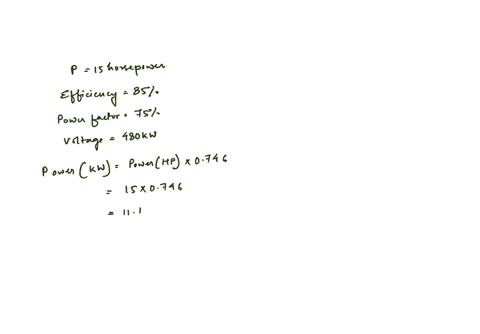 P = 15 horsepower
Efficiency = 85%
Power factor = 75%
Voltage = 480kW
Power (kW) = Power(HP) × 0.746
= 15 × 0.746
= 11.1